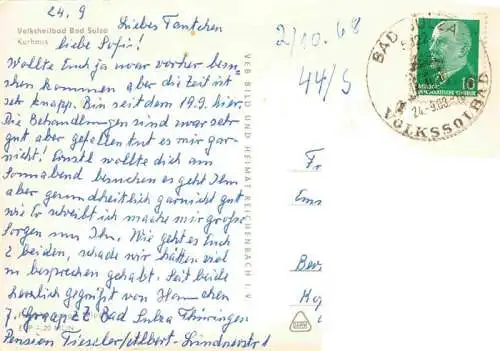 24.9 Liebes Tantchen
Volksheilbad Bad Sulza
Kurhaus
liebe Sofie!
Wollte Euch ja zwar vorher besu-
chen kommen aber die Zeit ist
sehr knapp. Bin seit dem 19.9. hier.
Die Behandlungen sind zwar sehr
gut aber gefallen tut es mir gar-
nicht! Ernstl wollte dich am
Sonnabend besuchen es geht Ihm
aber gesundheitlich garnicht gut
wie Er schreibt ich mache mir große
Sorgen um Ihn. Wie geht es Euch
2 beiden, schade wir hätten viel
zu besprechen gehabt. Seit beide
herzlich gegrüßt von Hannchen
Graap Bad Sulza Thüringen
Pension Tieseler Lindnerstr 1
VEB BILD UND HEIMAT REICHENBACH I. V.
2/10. 68
44/S
BAD SULZA
24.-9.68
VOLKSSOLBAD
10
Fr
Ems
Ber
Ho